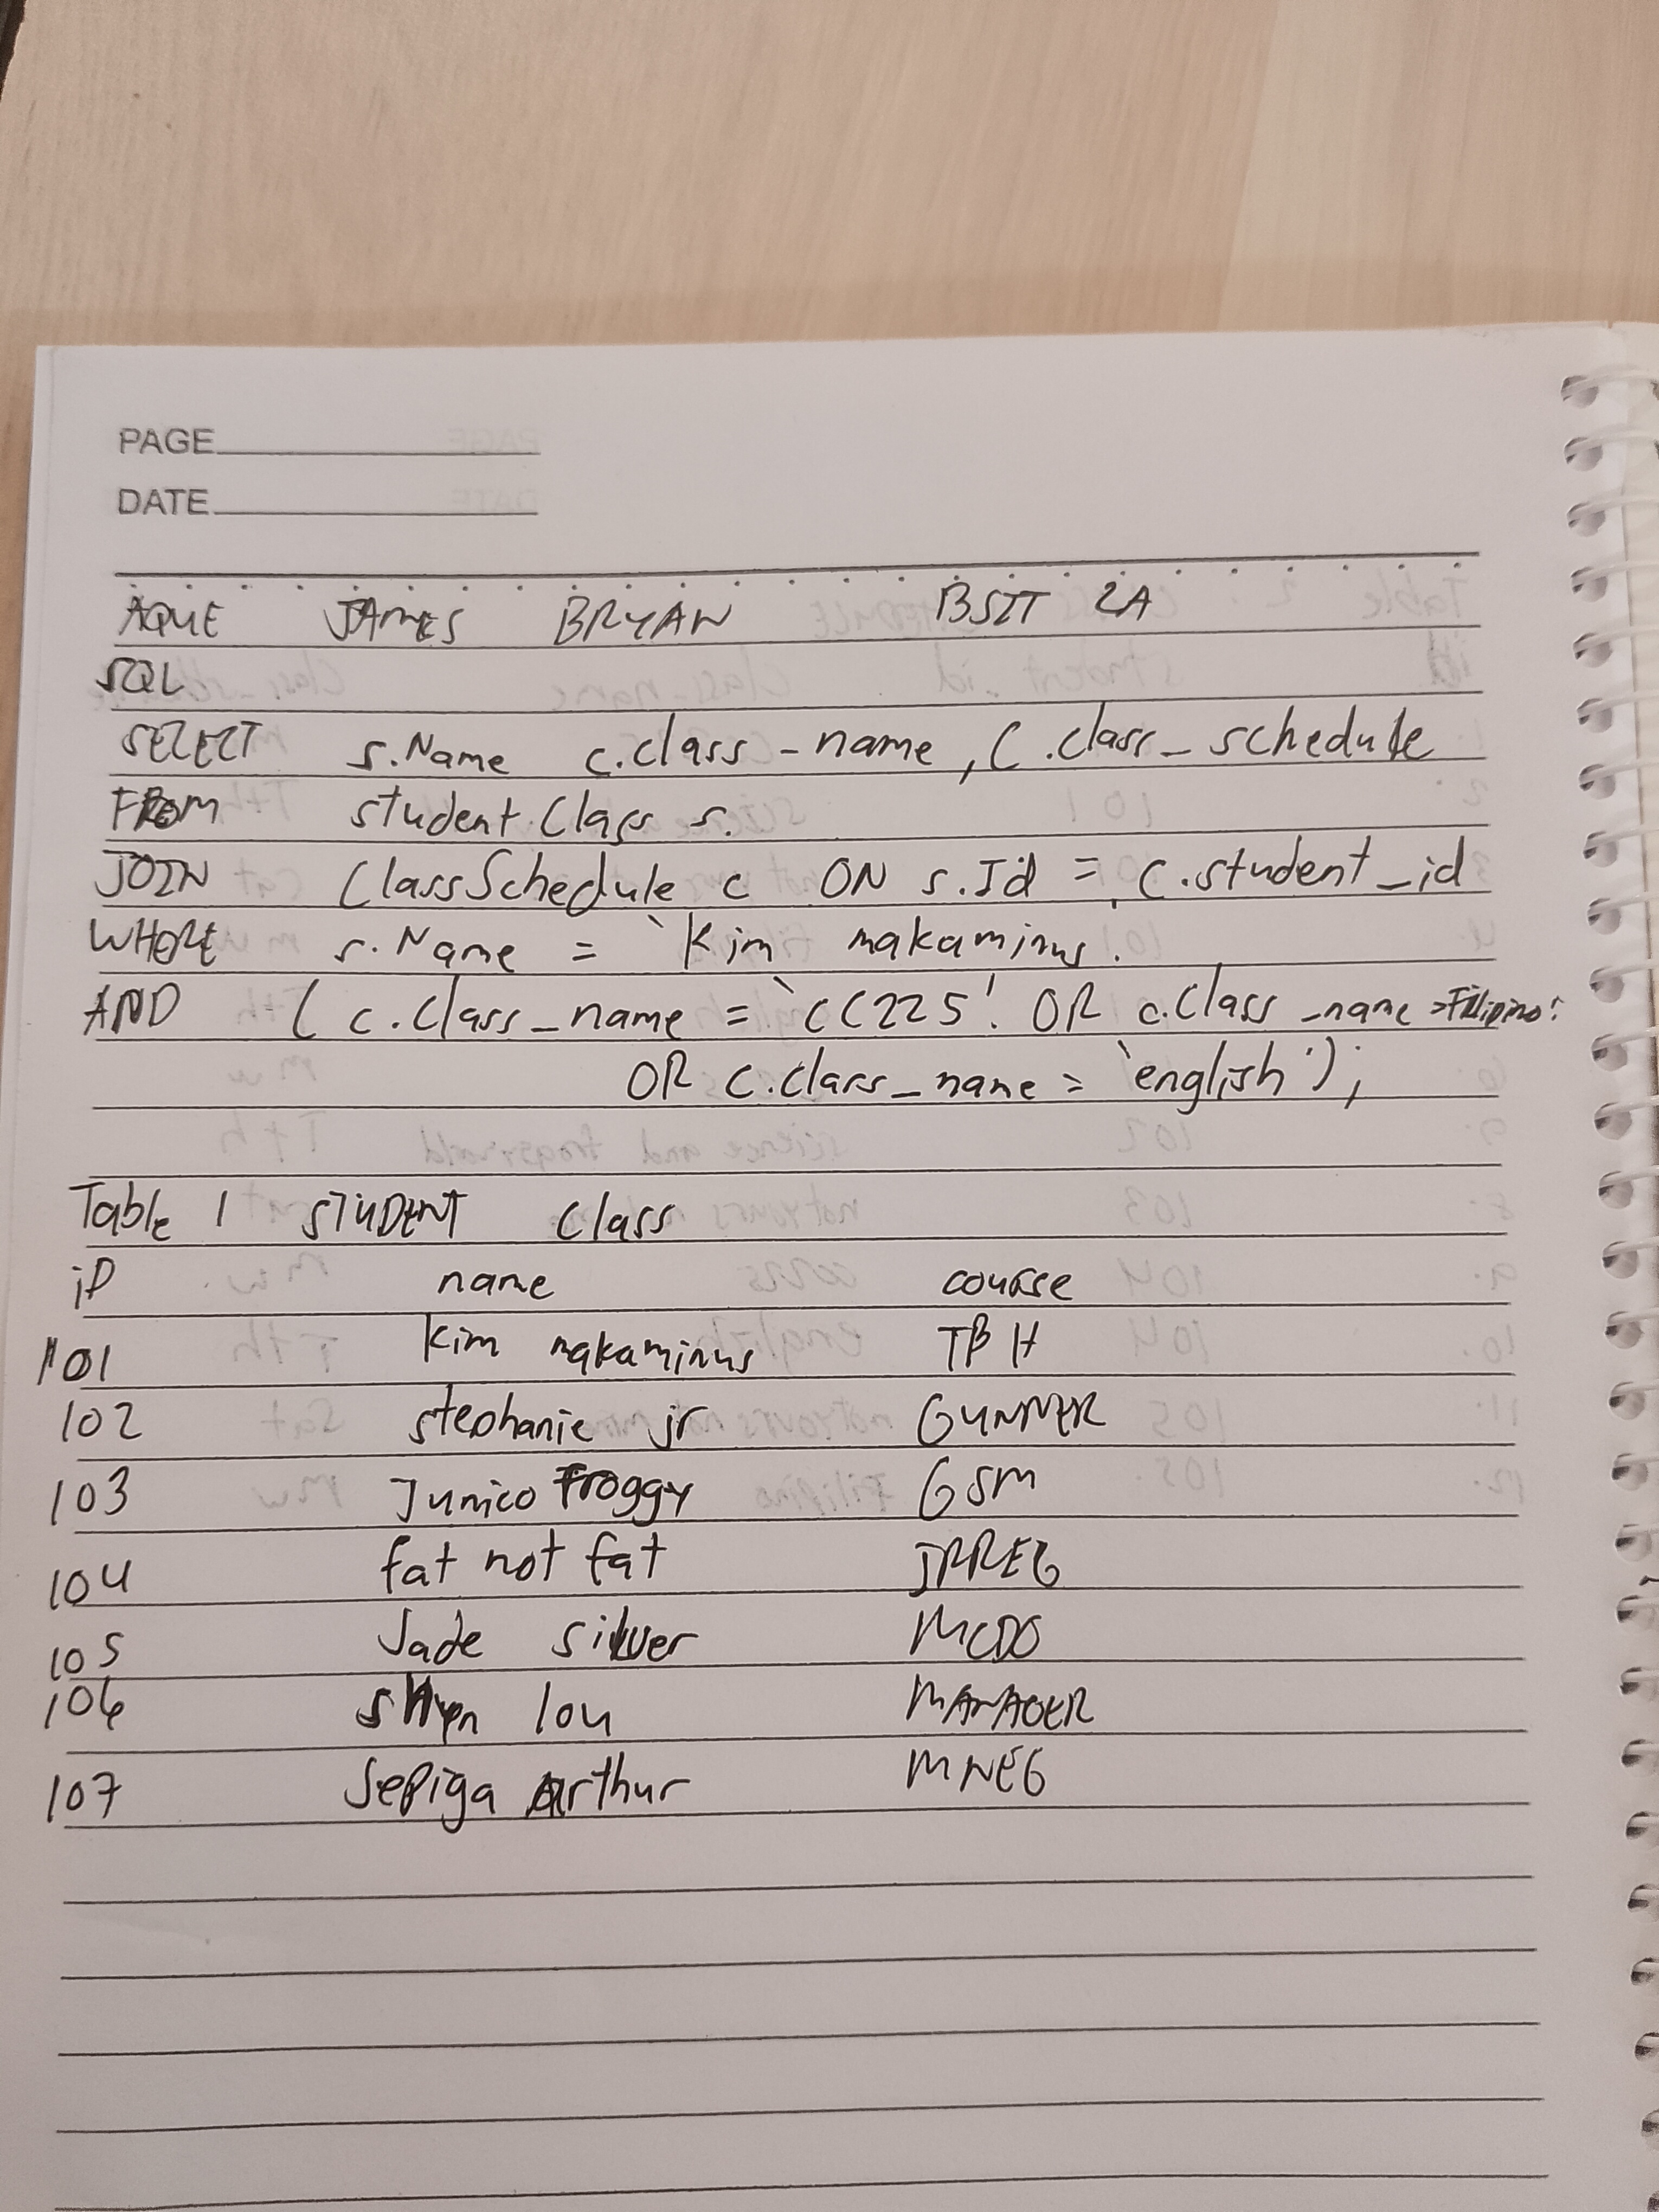 PAGE
DATE
AQUE JAMES BRYAN BSIT 2A
SQL
SELECT s.Name c.class-name, c.class_schedule
FROM student Class s.
JOIN ClassSchedule c ON s.Id = c.student_id
WHERE s.Name = `Kim makaminus.
AND (c.class_name = `CC225'. OR c.class_name =Filipino'
OR c.class_name = `english');
Table 1 STUDENT Class
iD name course
101 Kim makaminus TBH
102 stephanie jr GUNNER
103 Junico Froggy GSM
104 fat not fat IRREG
105 Jade silver MCDO
106 lou MANAGER
107 Sepiga Arthur MNEG